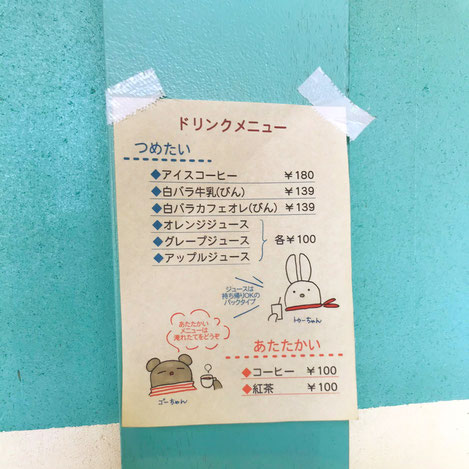 ドリンクメニュー
つめたい
◆アイスコーヒー ￥180
◆白バラ牛乳(びん) ￥139
◆白バラカフェオレ(びん) ￥139
◆オレンジジュース
◆グレープジュース 各￥100
◆アップルジュース
ジュースは
持ち帰りOKの
パックタイプ
トゥーちゃん
あたたかい
メニューは
淹れたてをどうぞ
ゴーちゃん
あたたかい
◆コーヒー ￥100
◆紅茶 ￥100